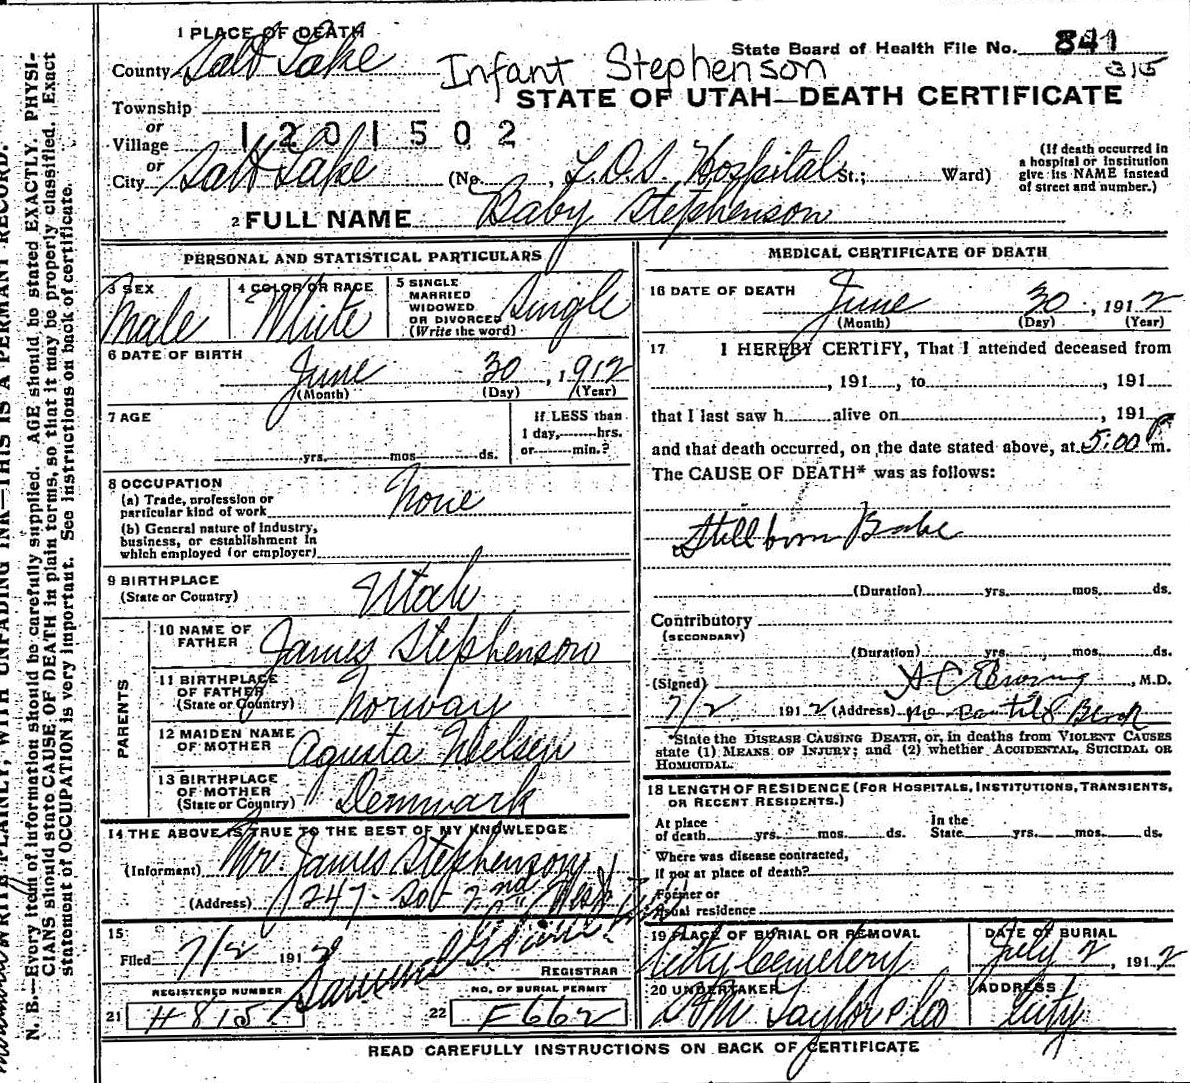 1 PLACE OF DEATH
County Salt Lake
Infant Stephenson
State Board of Health File No. 841
315
STATE OF UTAH—DEATH CERTIFICATE
Township
or
Village
1201502
or
City Salt Lake (No. , L.D.S. Hospital St.; Ward)
(If death occurred in a hospital or institution give its NAME instead of street and number.)
2 FULL NAME Baby Stephenson
PERSONAL AND STATISTICAL PARTICULARS
3 SEX
Male
4 COLOR OR RACE
White
5 SINGLE MARRIED WIDOWED OR DIVORCED (Write the word)
Single
6 DATE OF BIRTH
June 30, 1912
(Month) (Day) (Year)
7 AGE
yrs. mos. ds.
If LESS than 1 day, hrs. or min.?
8 OCCUPATION
(a) Trade, profession or particular kind of work None
(b) General nature of industry, business, or establishment in which employed (or employer)
9 BIRTHPLACE
(State or Country) Utah
PARENTS
10 NAME OF FATHER James Stephenson
11 BIRTHPLACE OF FATHER (State or Country) Norway
12 MAIDEN NAME OF MOTHER Agusta Nielsen
13 BIRTHPLACE OF MOTHER (State or Country) Denmark
14 THE ABOVE IS TRUE TO THE BEST OF MY KNOWLEDGE
(Informant) Mr. James Stephenson
(Address) 1247 So 2nd West
15
Filed 7/2 1912
REGISTRAR
REGISTERED NUMBER
21 H 815
NO. OF BURIAL PERMIT
22 F662
MEDICAL CERTIFICATE OF DEATH
16 DATE OF DEATH June 30, 1912
(Month) (Day) (Year)
17 I HEREBY CERTIFY, That I attended deceased from
, 191 , to , 191
that I last saw h alive on , 191
and that death occurred, on the date stated above, at 5:00 P m.
The CAUSE OF DEATH* was as follows:
Stillborn Babe
(Duration) yrs. mos. ds.
Contributory
(SECONDARY)
(Duration) yrs. mos. ds.
(Signed) , M.D.
7/2 1912 (Address)
*State the DISEASE CAUSING DEATH, or, in deaths from VIOLENT CAUSES
state (1) MEANS OF INJURY; and (2) whether ACCIDENTAL, SUICIDAL OR
HOMICIDAL.
18 LENGTH OF RESIDENCE (FOR HOSPITALS, INSTITUTIONS, TRANSIENTS,
OR RECENT RESIDENTS.)
At place of death yrs. mos. ds. In the State yrs. mos. ds.
Where was disease contracted,
if not at place of death?
Former or
usual residence
19 PLACE OF BURIAL OR REMOVAL
City Cemetery
DATE OF BURIAL
July 2, 1912
20 UNDERTAKER
Taylor & Co
ADDRESS
City
READ CAREFULLY INSTRUCTIONS ON BACK OF CERTIFICATE
WRITE PLAINLY, WITH UNFADING INK—THIS IS A PERMANT RECORD.
N. B.—Every item of information should be carefully supplied. AGE should be stated EXACTLY. PHYSI-
CIANS should state CAUSE OF DEATH in plain terms, so that it may be properly classified. Exact
statement of OCCUPATION is very important. See instructions on back of certificate.